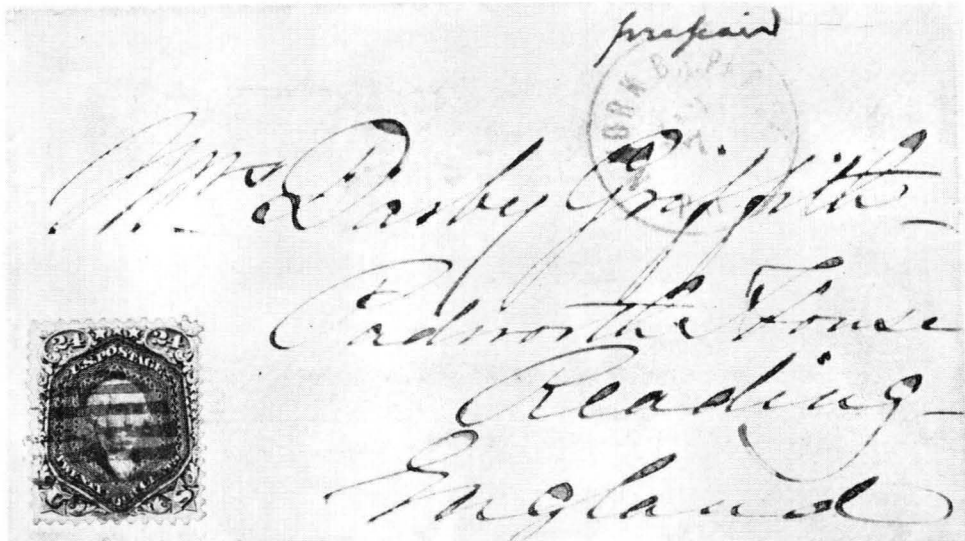 prepaid
ORK BR. PK
Mrs Darby Griffith
Padworth House
Reading
England
24 24
U.S. POSTAGE